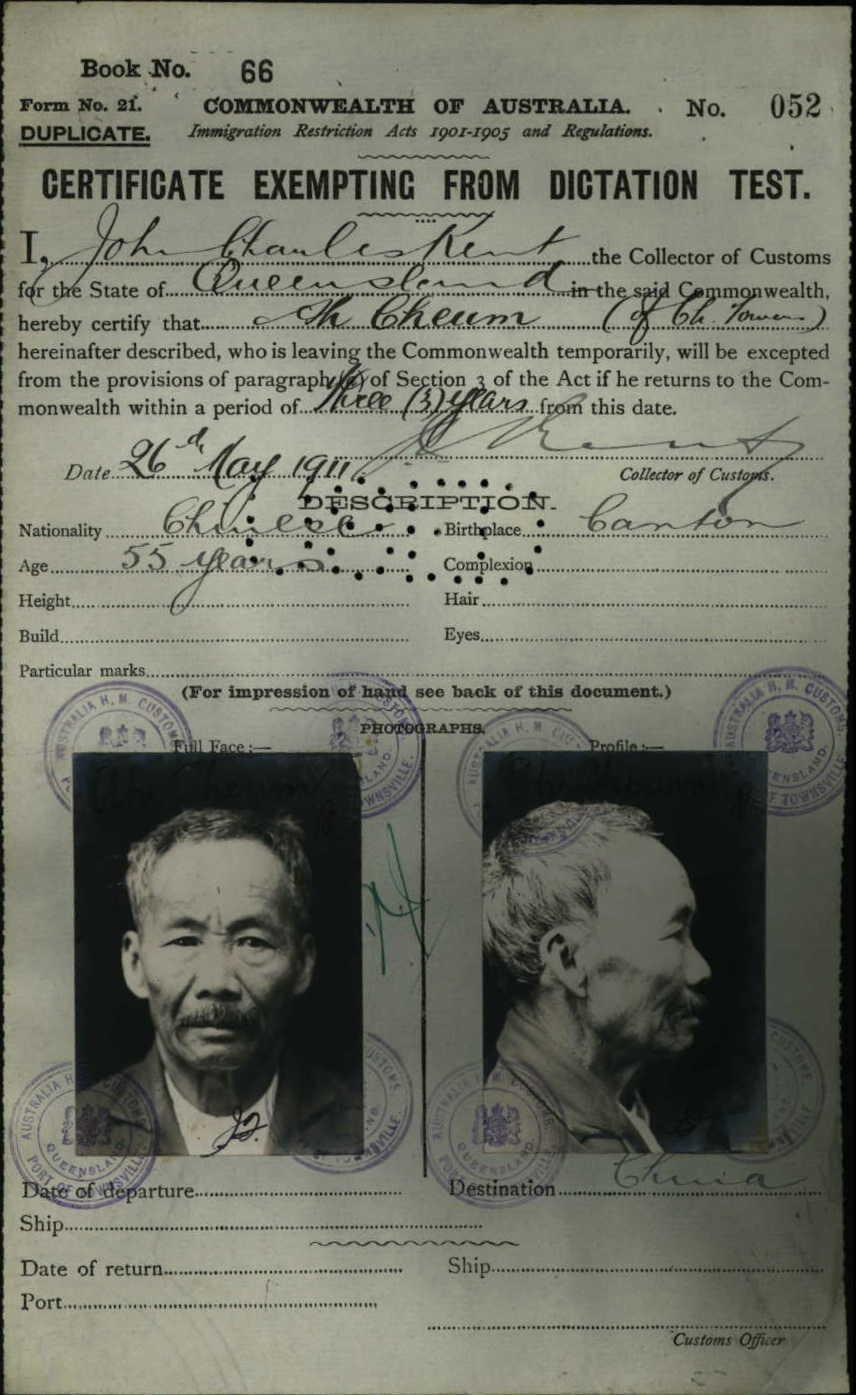 Book No. 66
Form No. 21. COMMONWEALTH OF AUSTRALIA. No. 052
DUPLICATE. Immigration Restriction Acts 1901-1905 and Regulations.
CERTIFICATE EXEMPTING FROM DICTATION TEST.
I, John Charles Kent the Collector of Customs
for the State of Queensland in the said Commonwealth,
hereby certify that Ah Cheum (of Ch. Towers)
hereinafter described, who is leaving the Commonwealth temporarily, will be excepted
from the provisions of paragraph of Section 3 of the Act if he returns to the Com-
monwealth within a period of Three (3) years from this date.
Date 26th May 1911 Collector of Customs.
DESCRIPTION.
Nationality Chinese Birthplace Canton
Age 55 years Complexion
Height Hair
Build Eyes
Particular marks
(For impression of hand see back of this document.)
PHOTOGRAPHS.
Full Face :— Profile :—
AUSTRALIA H. M. CUSTOMS
QUEENSLAND
PORT OF TOWNSVILLE
Date of departure Destination China
Ship
Date of return Ship
Port
Customs Officer